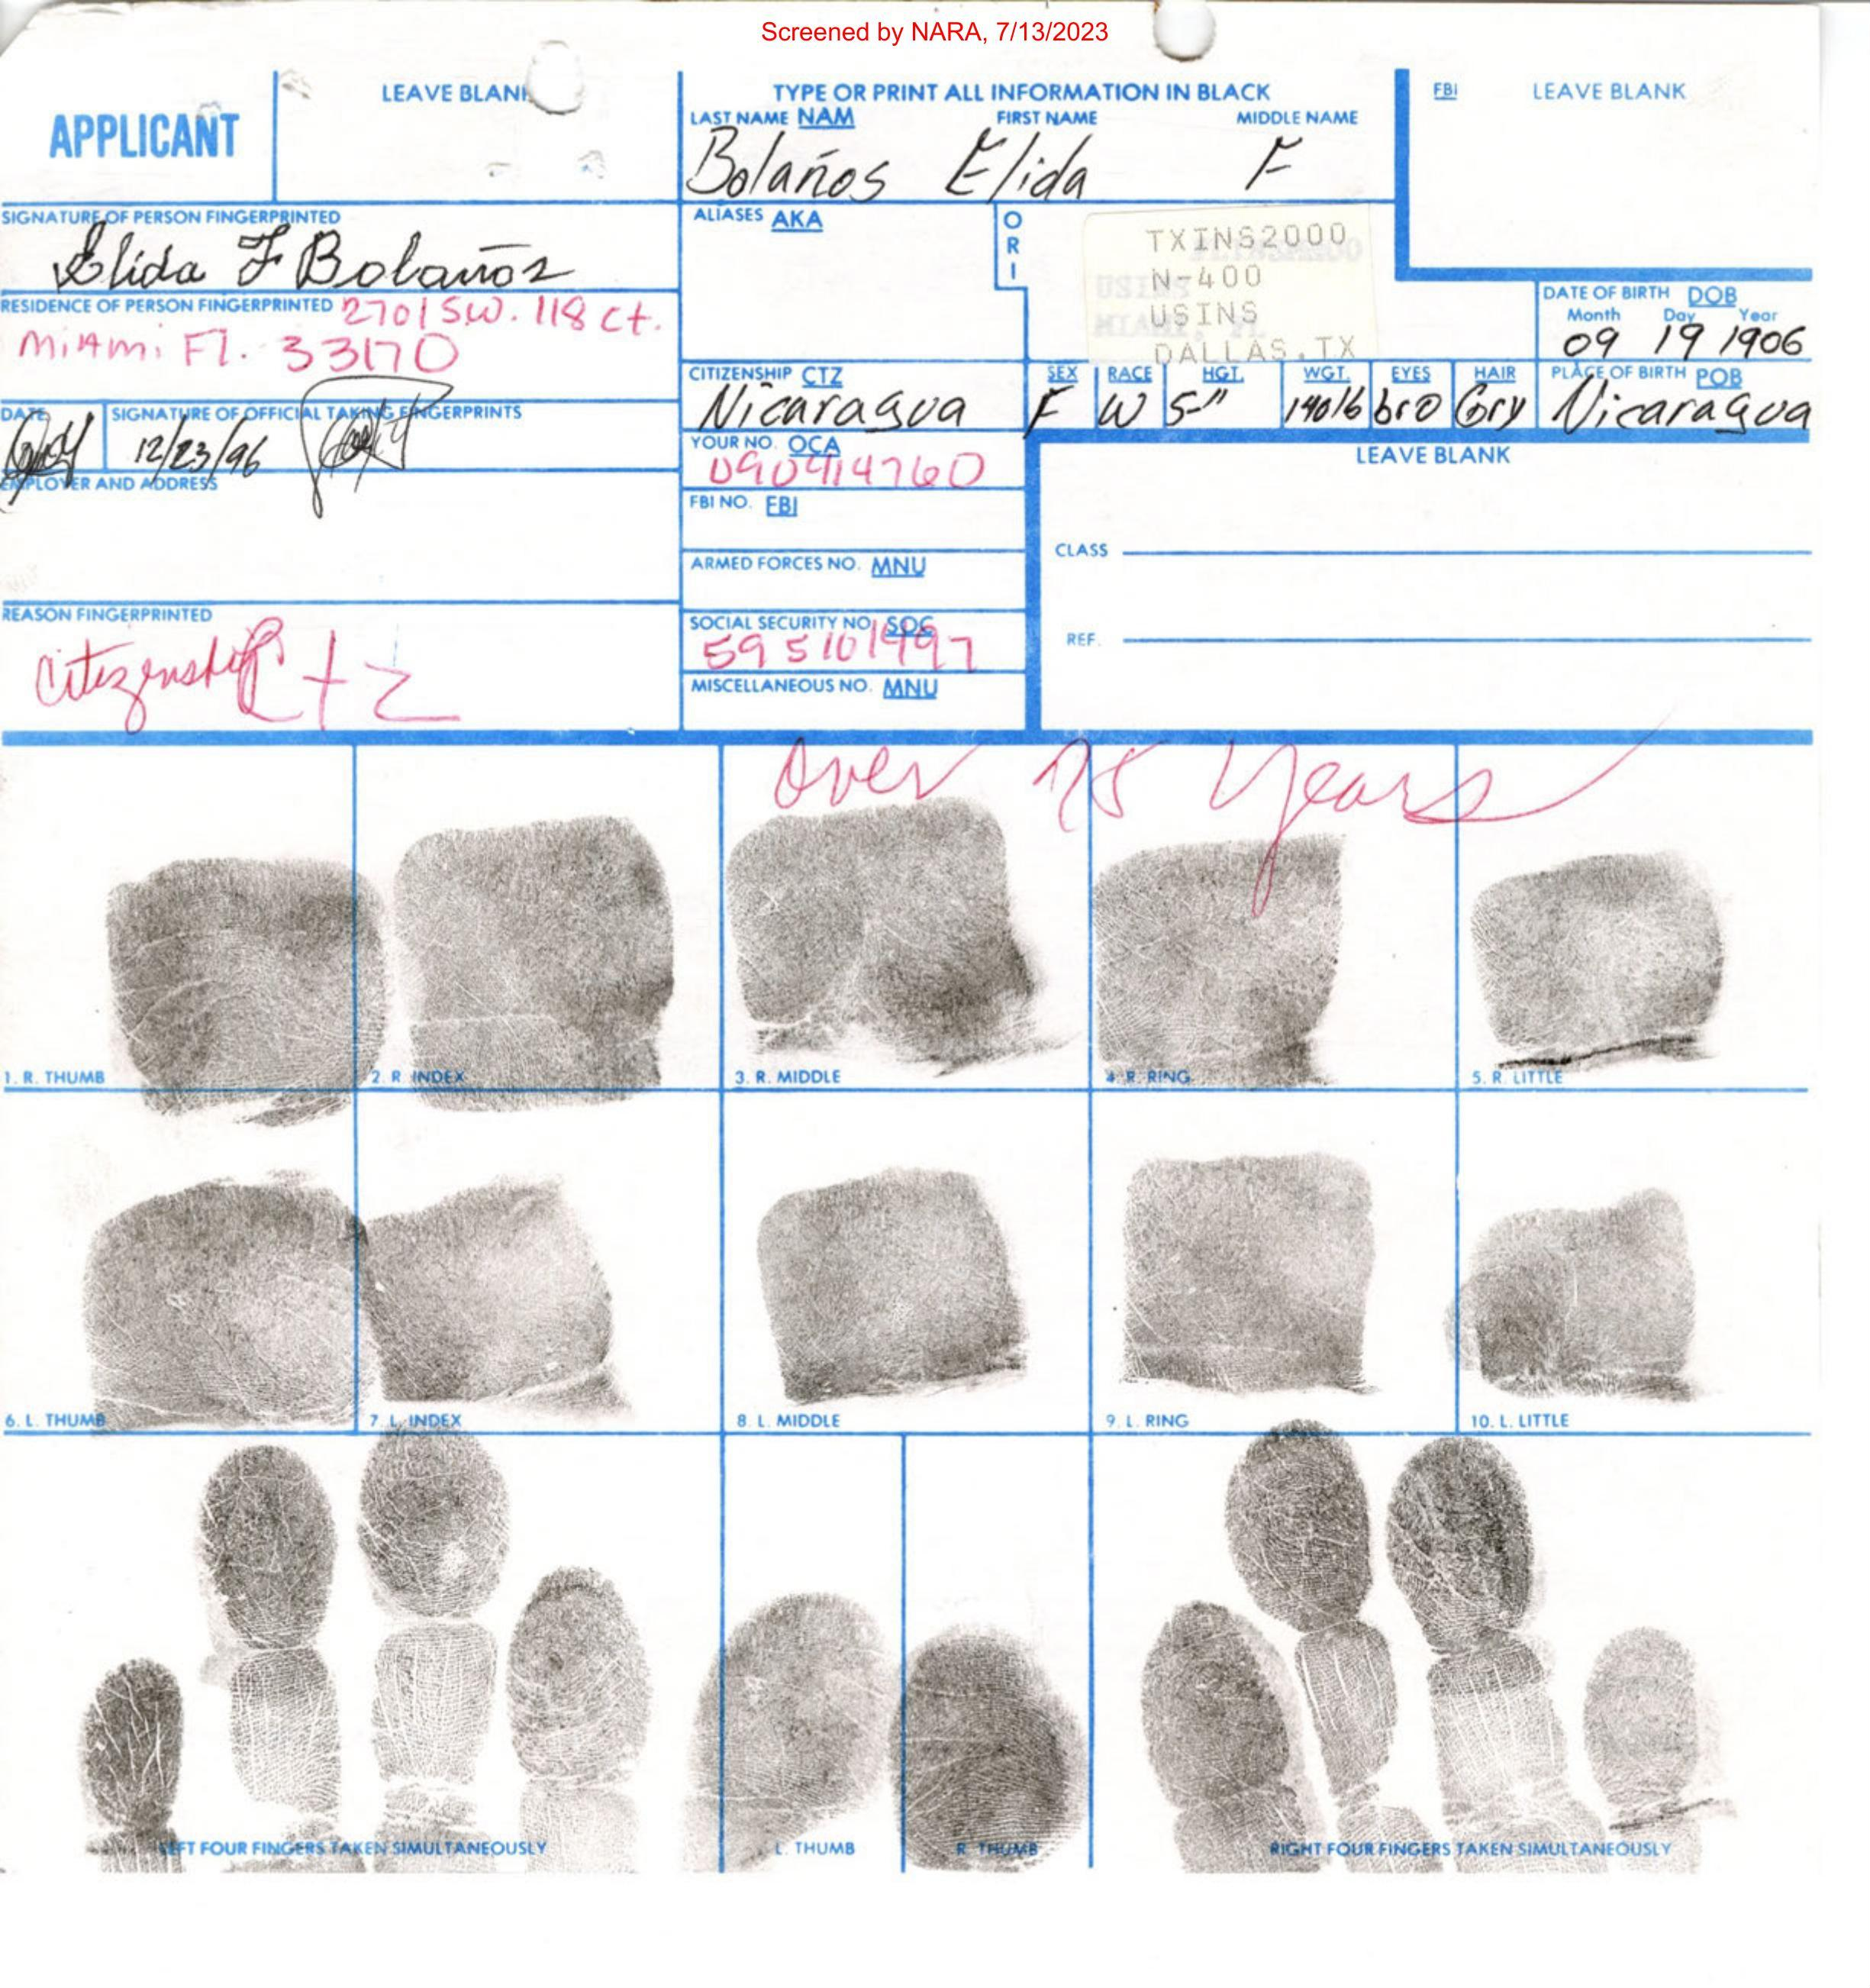 Screened by NARA, 7/13/2023
APPLICANT
LEAVE BLANK
TYPE OR PRINT ALL INFORMATION IN BLACK
LAST NAME NAM FIRST NAME MIDDLE NAME
Bolaños Elida F
FBI LEAVE BLANK
SIGNATURE OF PERSON FINGERPRINTED
Elida F Bolaños
ALIASES AKA
ORI
TXINS2000
N-400
USINS
DALLAS, TX
RESIDENCE OF PERSON FINGERPRINTED 2701 SW. 118 Ct.
Miami Fl. 33170
DATE OF BIRTH DOB
Month Day Year
09 19 1906
CITIZENSHIP CTZ
Nicaragua
SEX RACE HGT. WGT. EYES HAIR PLACE OF BIRTH POB
F W 5-" 140lb bro Gry Nicaragua
DATE SIGNATURE OF OFFICIAL TAKING FINGERPRINTS
12/23/96
YOUR NO. OCA
090914760
LEAVE BLANK
EMPLOYER AND ADDRESS
FBI NO. FBI
CLASS
ARMED FORCES NO. MNU
REASON FINGERPRINTED
citizenship Ctz
SOCIAL SECURITY NO. SOC
595101997
REF.
MISCELLANEOUS NO. MNU
Over 75 years
1. R. THUMB
2. R. INDEX
3. R. MIDDLE
4. R. RING
5. R. LITTLE
6. L. THUMB
7. L. INDEX
8. L. MIDDLE
9. L. RING
10. L. LITTLE
LEFT FOUR FINGERS TAKEN SIMULTANEOUSLY
L. THUMB
R. THUMB
RIGHT FOUR FINGERS TAKEN SIMULTANEOUSLY